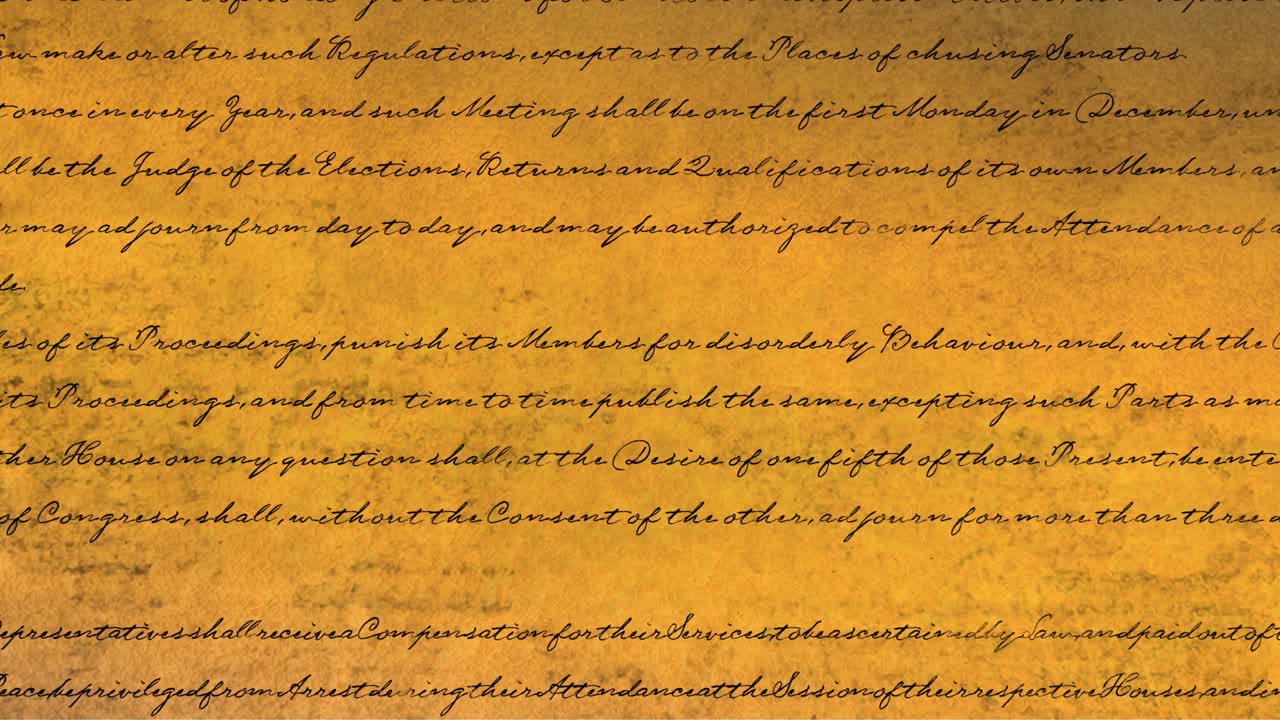 make or alter such Regulations, except as to the Places of chusing Senators.
once in every Year, and such Meeting shall be on the first Monday in December, un
ll be the Judge of the Elections, Returns and Qualifications of its own Members, an
r may adjourn from day to day, and may be authorized to compel the Attendance of a
le.
es of its Proceedings, punish its Members for disorderly Behaviour, and, with the C
its Proceedings, and from time to time publish the same, excepting such Parts as ma
ther House on any question shall, at the Desire of one fifth of those Present, be ente
of Congress, shall, without the Consent of the other, adjourn for more than three d
epresentatives shall receive a Compensation for their Services, to be ascertained by Law, and paid out of t
Peace, be privileged from Arrest during their Attendance at the Session of their respective Houses, and in